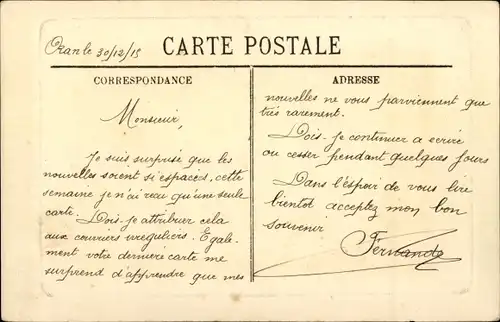 Oran le 30/12/15
CARTE POSTALE
CORRESPONDANCE
Monsieur,
Je suis surprise que les
nouvelles soient si espacés, cette
semaine je n'ai reçu qu'une seule
carte. Dois-je attribuer cela
aux courriers irreguliers. Egale-
ment votre derniere carte me
surprend d'apprendre que mes
ADRESSE
nouvelles ne vous parviennent que
très rarement.
Dois-je continuer a ecrire
ou cesser pendant quelques jours
Dans l'éspoir de vous lire
bientot acceptez mon bon
souvenir
Fernande